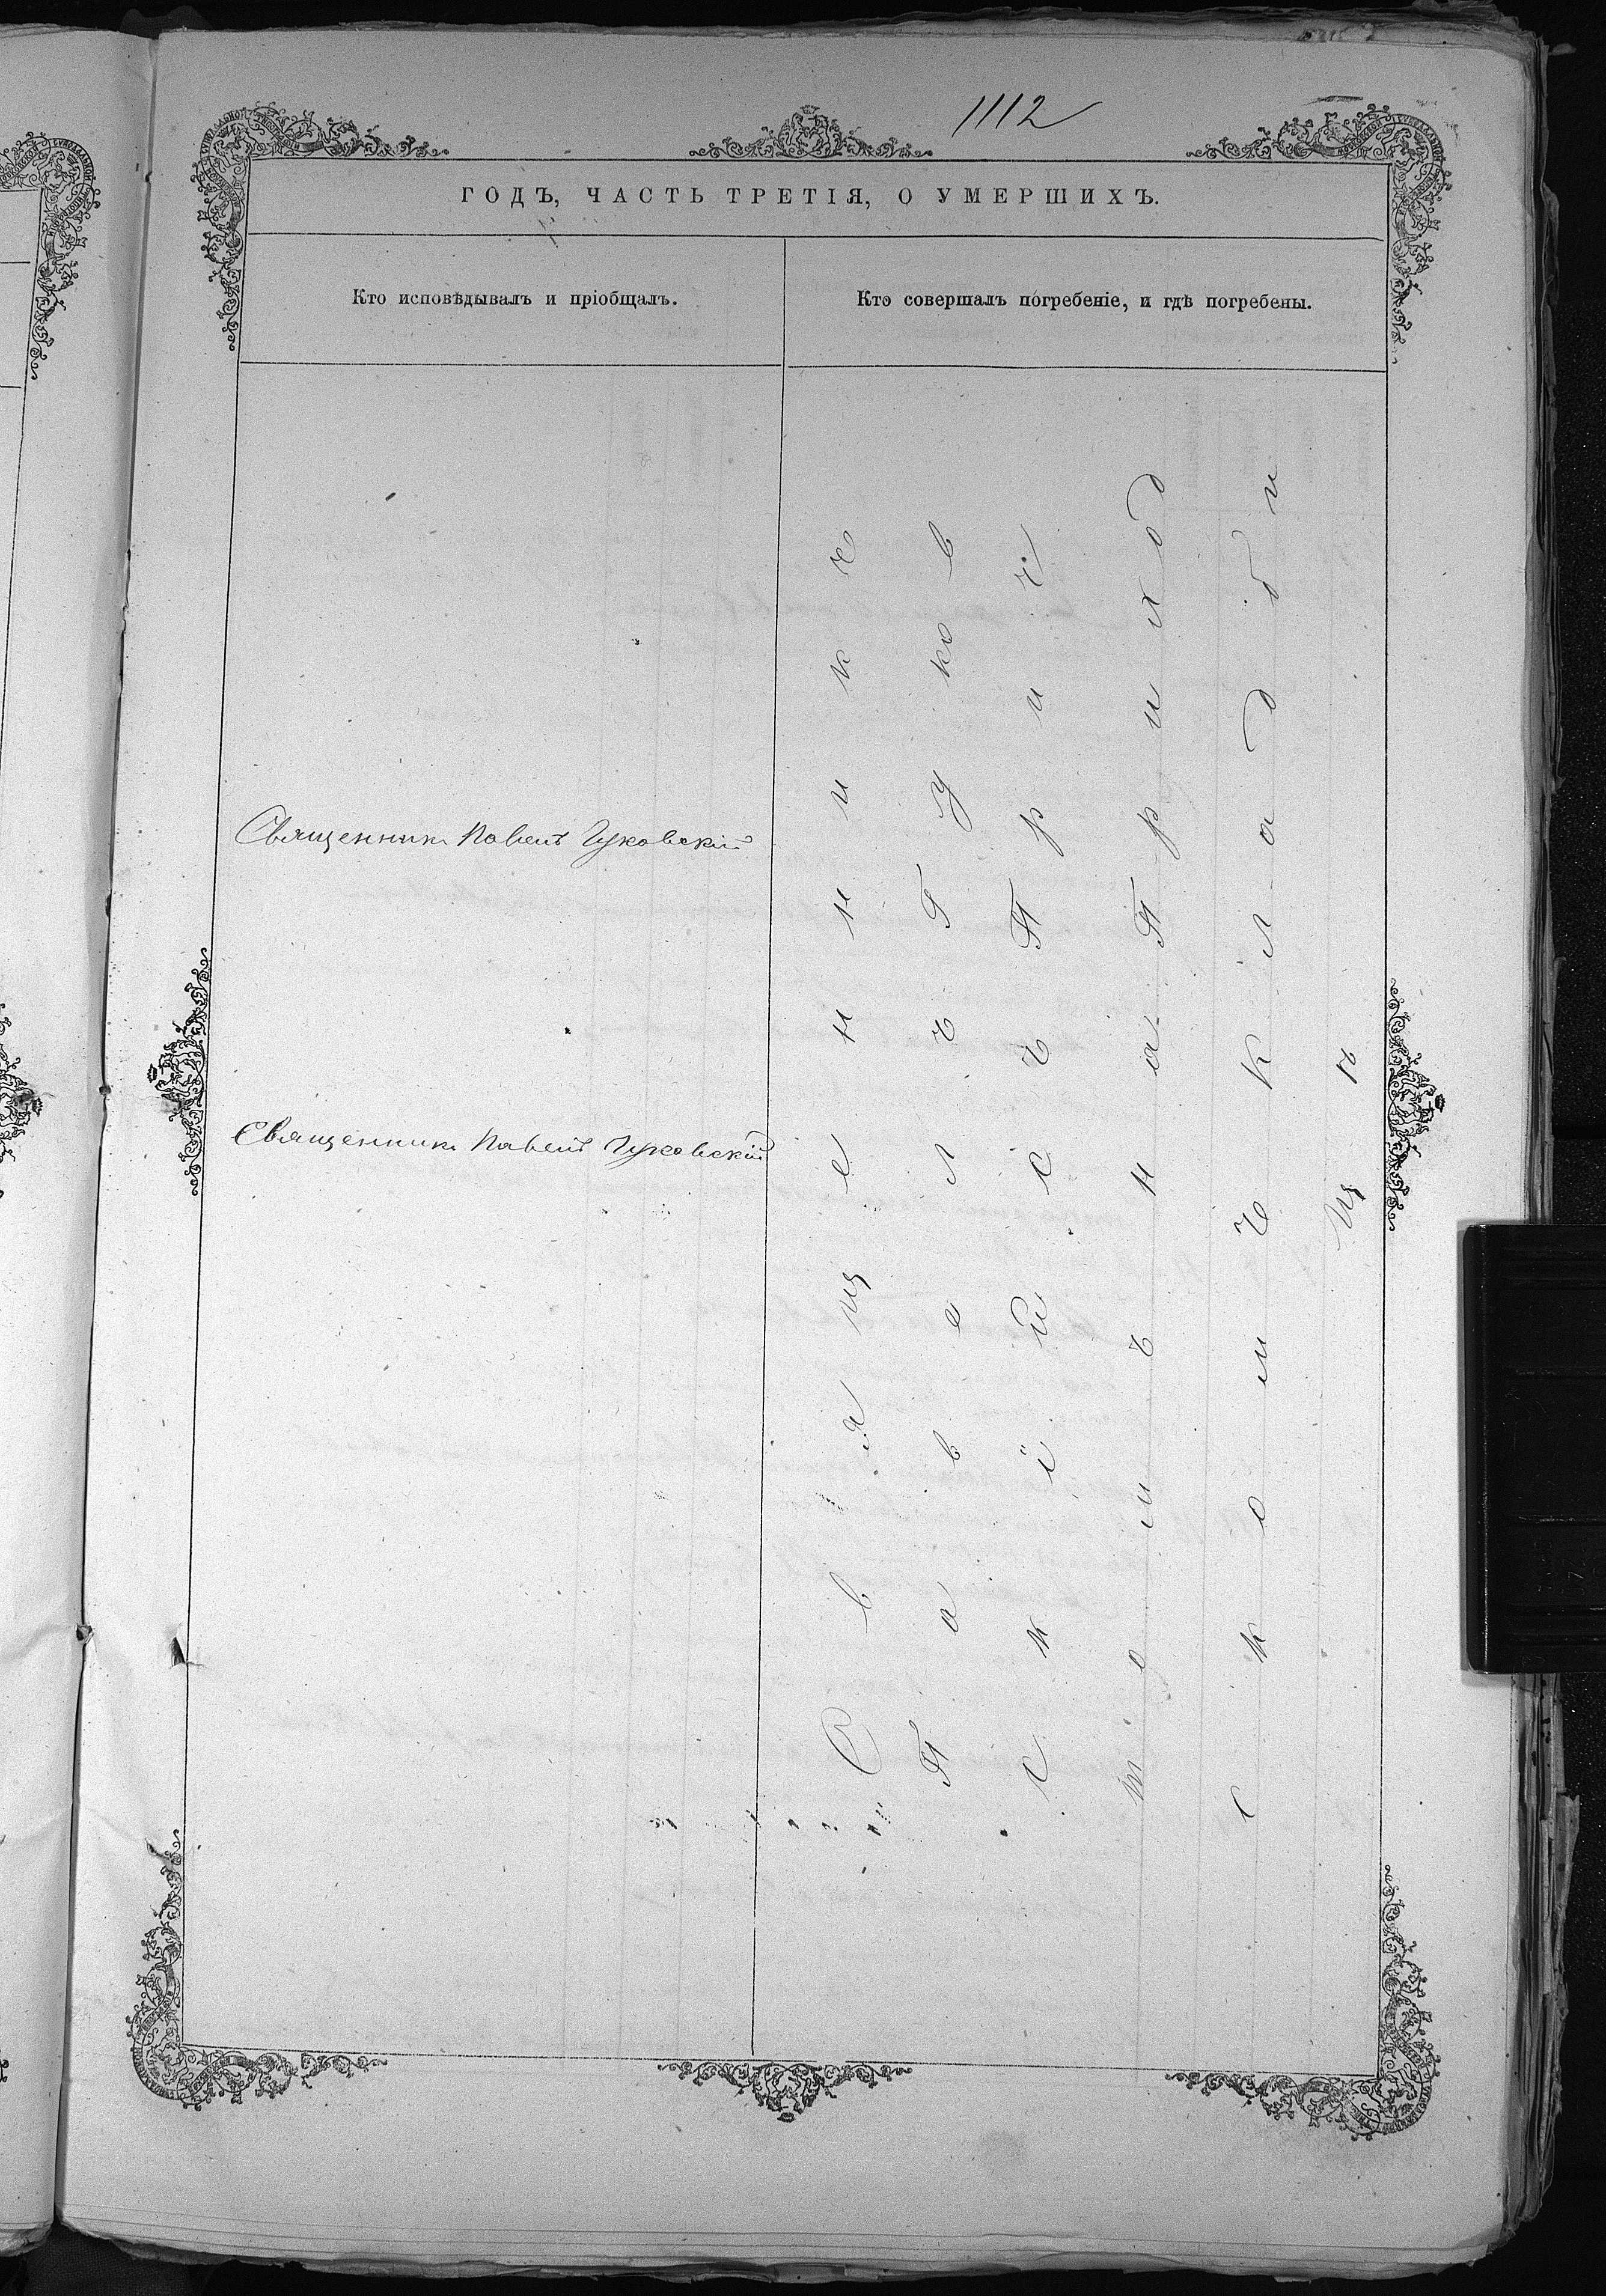 1112
ГОДЪ, ЧАСТЬ ТРЕТІЯ, О УМЕРШИХЪ.
Кто исповѣдывалъ и пріобщалъ.
Кто совершалъ погребеніе, и гдѣ погребены.
Священникъ Павелъ Гуковскій
Священникъ Павелъ Гуковскій
Священникъ
Павелъ Гуков
скій съ Прич
томъ на Приход
скомъ Кладби
щѣ